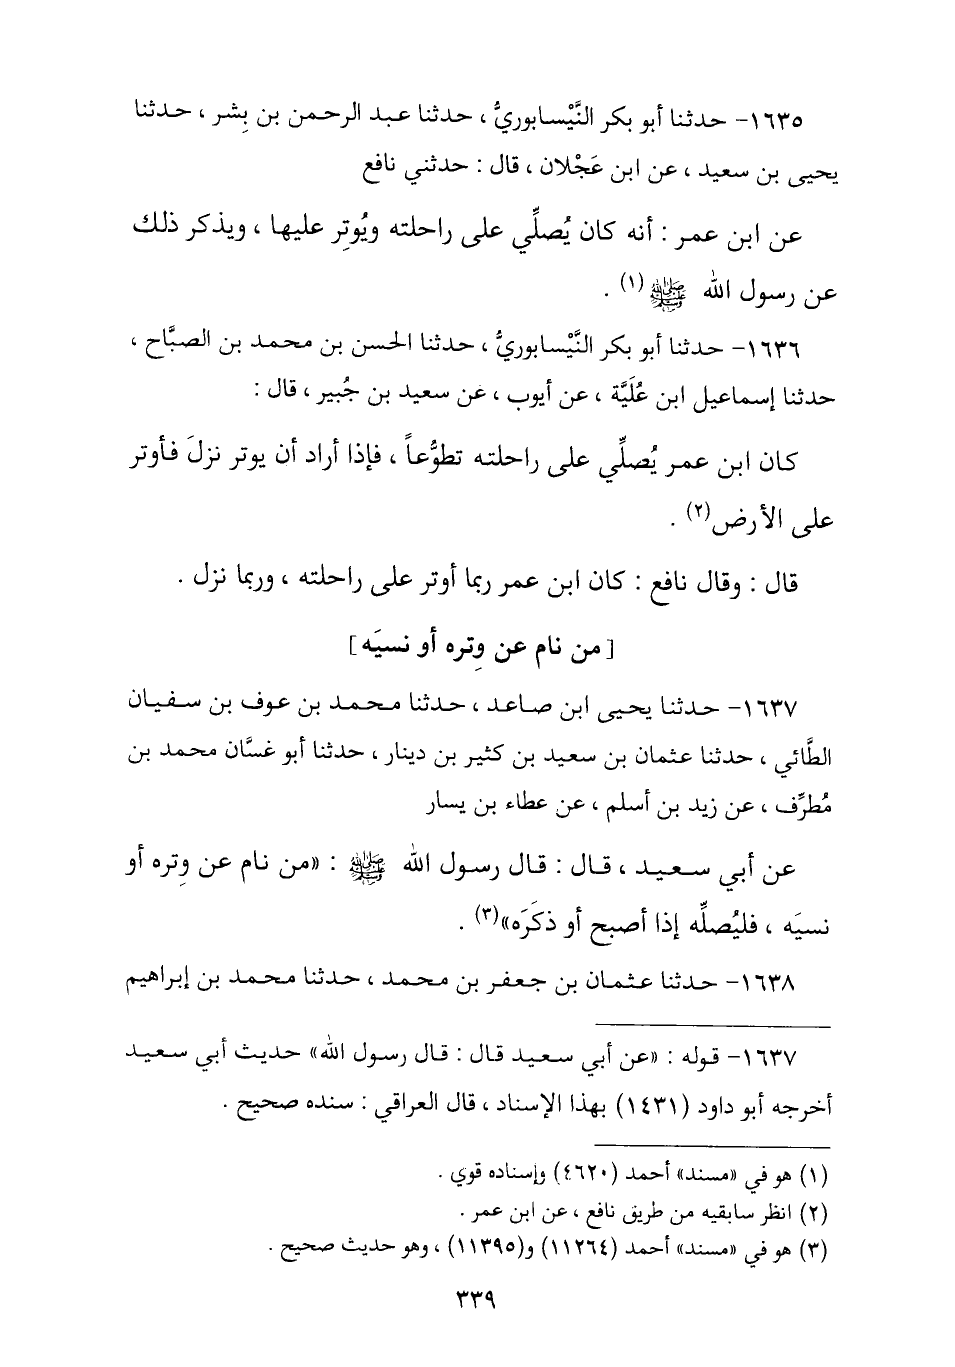 ١٦٣٥- حدثنا أبو بكر النَّيْسابوريُّ ، حدثنا عبد الرحمن بن بِشر ، حدثنا
يحيى بن سعيد ، عن ابن عَجْلان ، قال : حدثني نافع
عن ابن عمر : أنه كان يُصلِّي على راحلته ويُوتِر عليها ، ويذكر ذلك
عن رسول الله ﷺ(١) .
١٦٣٦- حدثنا أبو بكر النَّيْسابوريُّ ، حدثنا الحسن بن محمد بن الصبَّاح ،
حدثنا إسماعيل ابن عُلَيَّة ، عن أيوب ، عن سعيد بن جُبير ، قال :
كان ابن عمر يُصلِّي على راحلته تطوُّعاً ، فإذا أراد أن يوتر نزلَ فأوتر
على الأرض(٢) .
قال : وقال نافع : كان ابن عمر ربما أوتر على راحلته ، وربما نزل .
[من نام عن وِتره أو نسيَه]
١٦٣٧- حدثنا يحيى ابن صاعد ، حدثنا محمد بن عوف بن سفيان
الطَّائي ، حدثنا عثمان بن سعيد بن كثير بن دينار ، حدثنا أبو غسَّان محمد بن
مُطرِّف ، عن زيد بن أسلم ، عن عطاء بن يسار
عن أبي سعيد ، قال : قال رسول الله ﷺ : «من نام عن وِتره أو
نسيَه ، فليُصلِّه إذا أصبح أو ذكَرَه»(٣) .
١٦٣٨- حدثنا عثمان بن جعفر بن محمد ، حدثنا محمد بن إبراهيم
١٦٣٧- قوله : «عن أبي سعيد قال : قال رسول الله» حديث أبي سعيد
أخرجه أبو داود (١٤٣١) بهذا الإسناد ، قال العراقي : سنده صحيح .
(١) هو في «مسند» أحمد (٤٦٢٠) وإسناده قوي .
(٢) انظر سابقيه من طريق نافع ، عن ابن عمر .
(٣) هو في «مسند» أحمد (١١٢٦٤) و(١١٣٩٥) ، وهو حديث صحيح .
٣٣٩